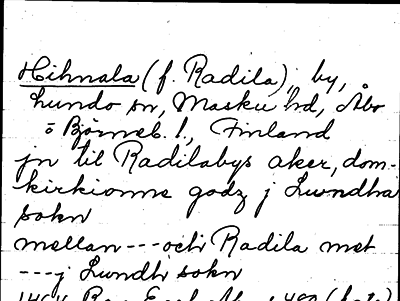 Hihnala (f. Radila), by,
Lundo sn, Masku hd, Åbo
o Björneb. l., Finland
jn til Radilabys aker, dom-
kirkionne godz j Lwndha
sokn
mellan---och Radila met
---j Lundh sokn